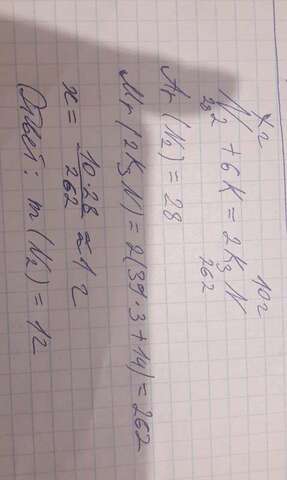 x г 10 г
N₂ + 6K = 2K₃N
28 262
Ar (N₂) = 28
Mr (2K₃N) = 2(39·3 + 14) = 262
x = 10·28 / 262 ≈ 1 г
Ответ: m (N₂) = 1г